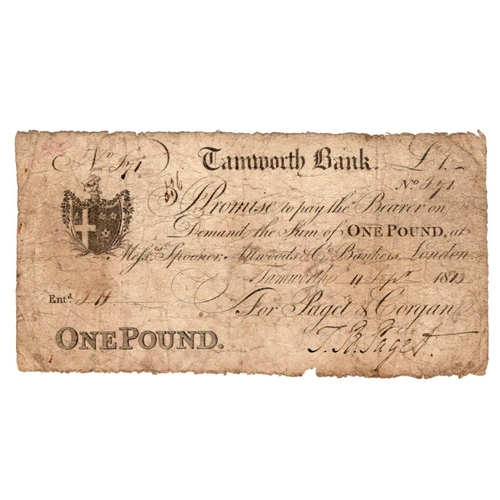 Nº 571 Tamworth Bank. £1-
Nº 571
I Promise to pay the Bearer on
Demand the Sum of ONE POUND, at
Messrs Spooner Attwoods & Co Bankers, London
Tamworth 11 Sept 1813
Entd
For Paget & Corgan
ONE POUND. T. B. Paget.